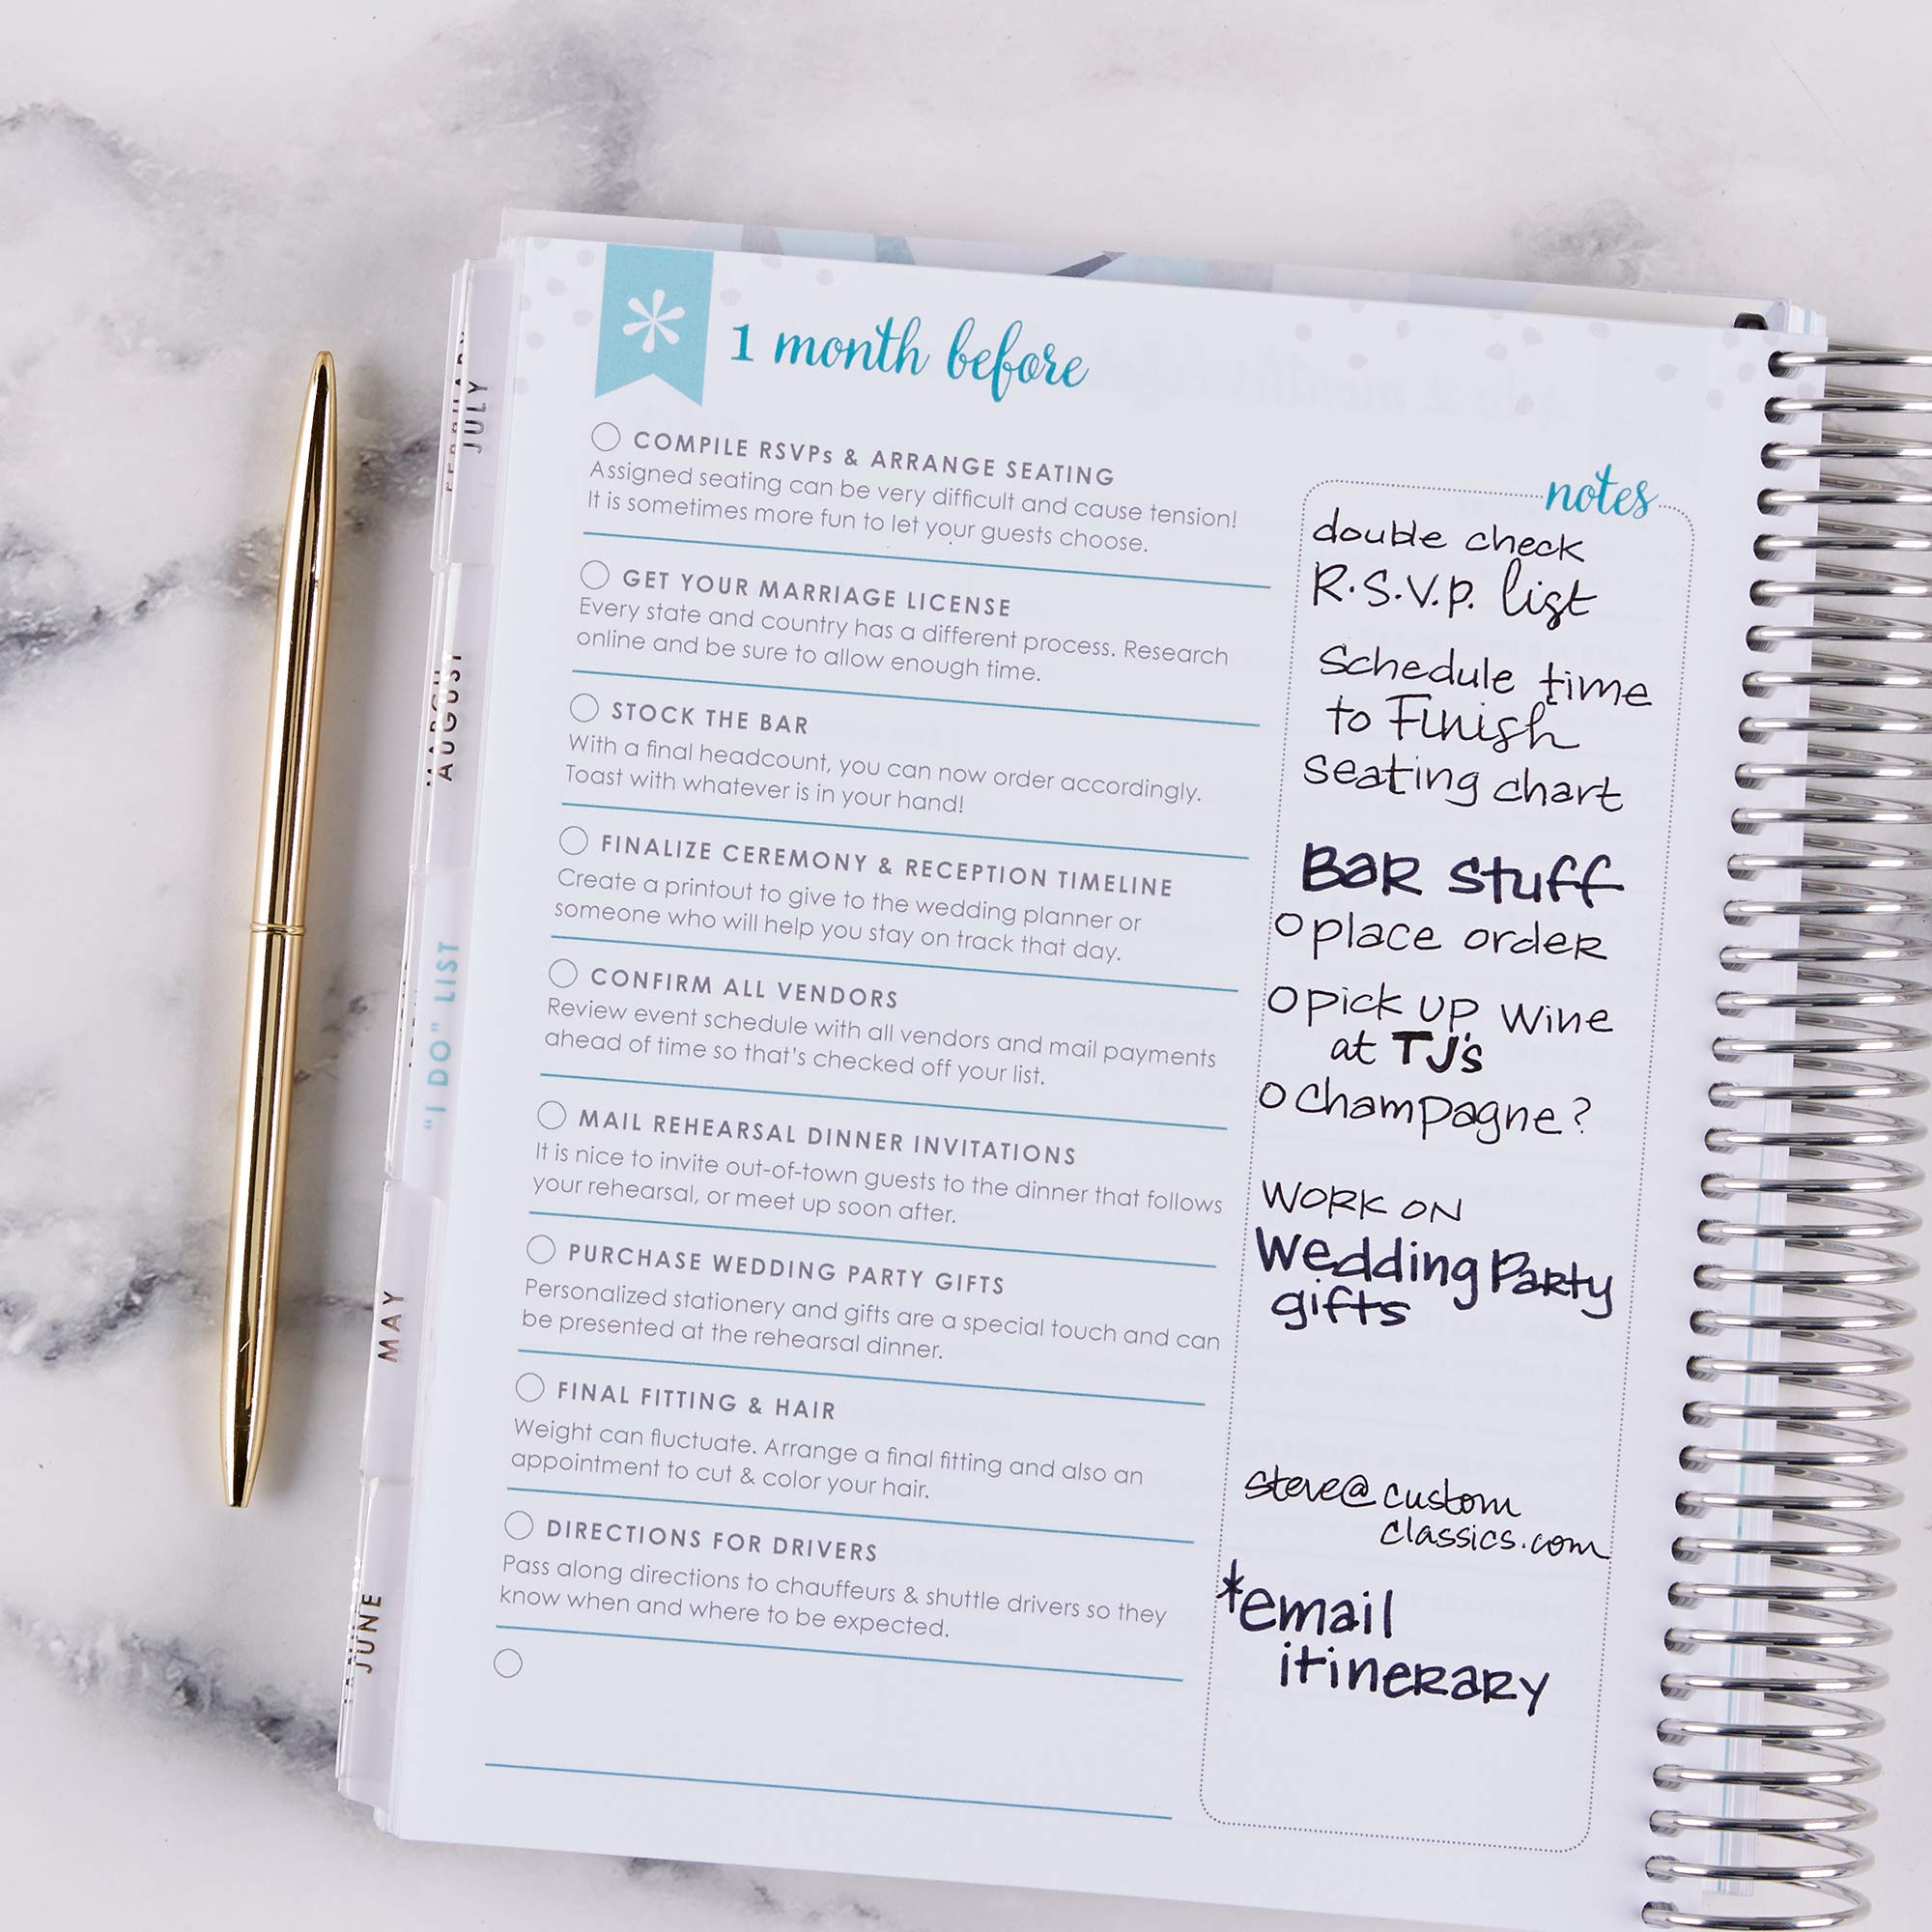 1 month before
COMPILE RSVPs & ARRANGE SEATING
Assigned seating can be very difficult and cause tension!
It is sometimes more fun to let your guests choose.
GET YOUR MARRIAGE LICENSE
Every state and country has a different process. Research
online and be sure to allow enough time.
STOCK THE BAR
With a final headcount, you can now order accordingly.
Toast with whatever is in your hand!
FINALIZE CEREMONY & RECEPTION TIMELINE
Create a printout to give to the wedding planner or
someone who will help you stay on track that day.
CONFIRM ALL VENDORS
Review event schedule with all vendors and mail payments
ahead of time so that's checked off your list.
MAIL REHEARSAL DINNER INVITATIONS
It is nice to invite out-of-town guests to the dinner that follows
your rehearsal, or meet up soon after.
PURCHASE WEDDING PARTY GIFTS
Personalized stationery and gifts are a special touch and can
be presented at the rehearsal dinner.
FINAL FITTING & HAIR
Weight can fluctuate. Arrange a final fitting and also an
appointment to cut & color your hair.
DIRECTIONS FOR DRIVERS
Pass along directions to chauffeurs & shuttle drivers so they
know when and where to be expected.
notes
double check
R.S.V.P. list
Schedule time
to Finish
seating chart
Bar Stuff
place order
pick up wine
at TJ's
champagne?
WORK ON
Wedding Party
gifts
steve@custom
classics.com
*email
itinerary
FEBRUARY
JULY
MARCH
AUGUST
"I DO" LIST
MAY
JUNE